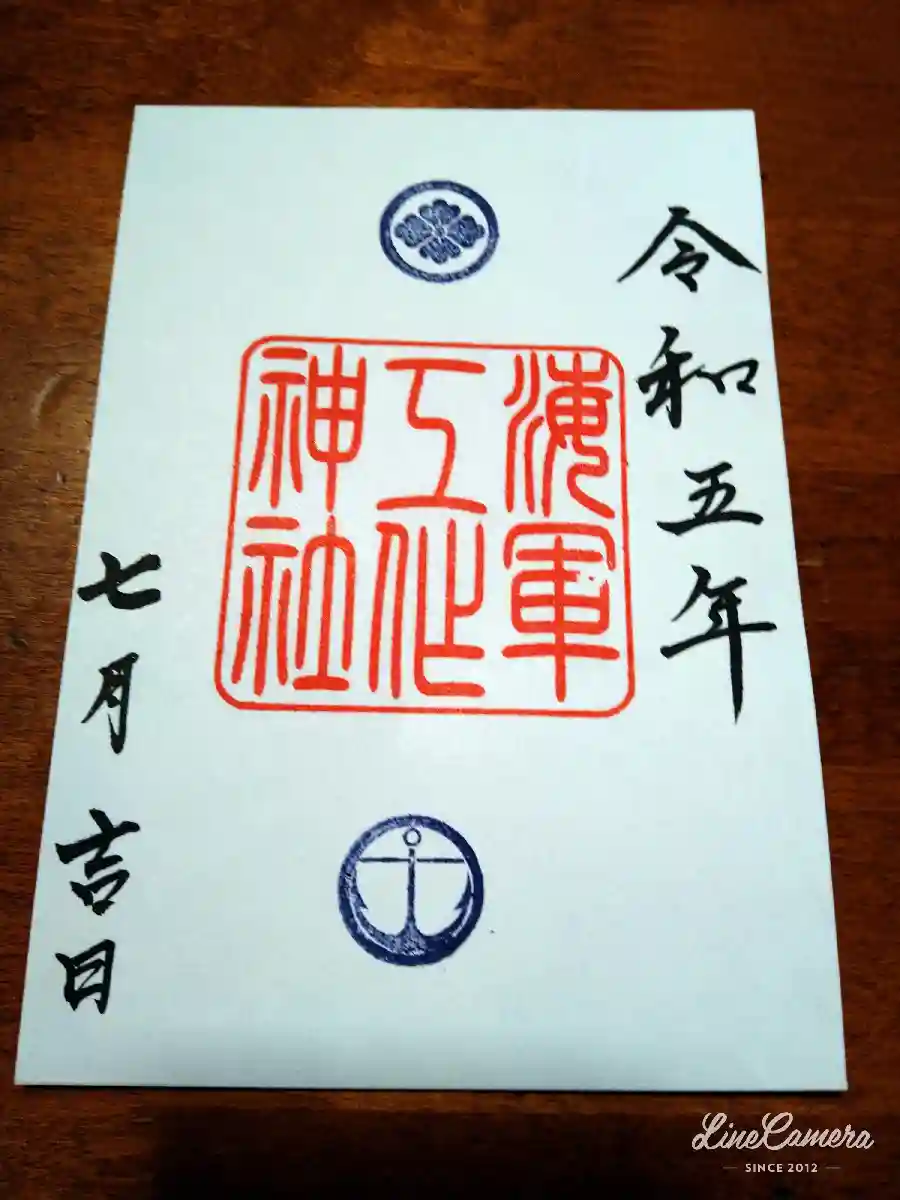 令和五年
海軍
工作
神社
七月吉日
LineCamera
SINCE 2012